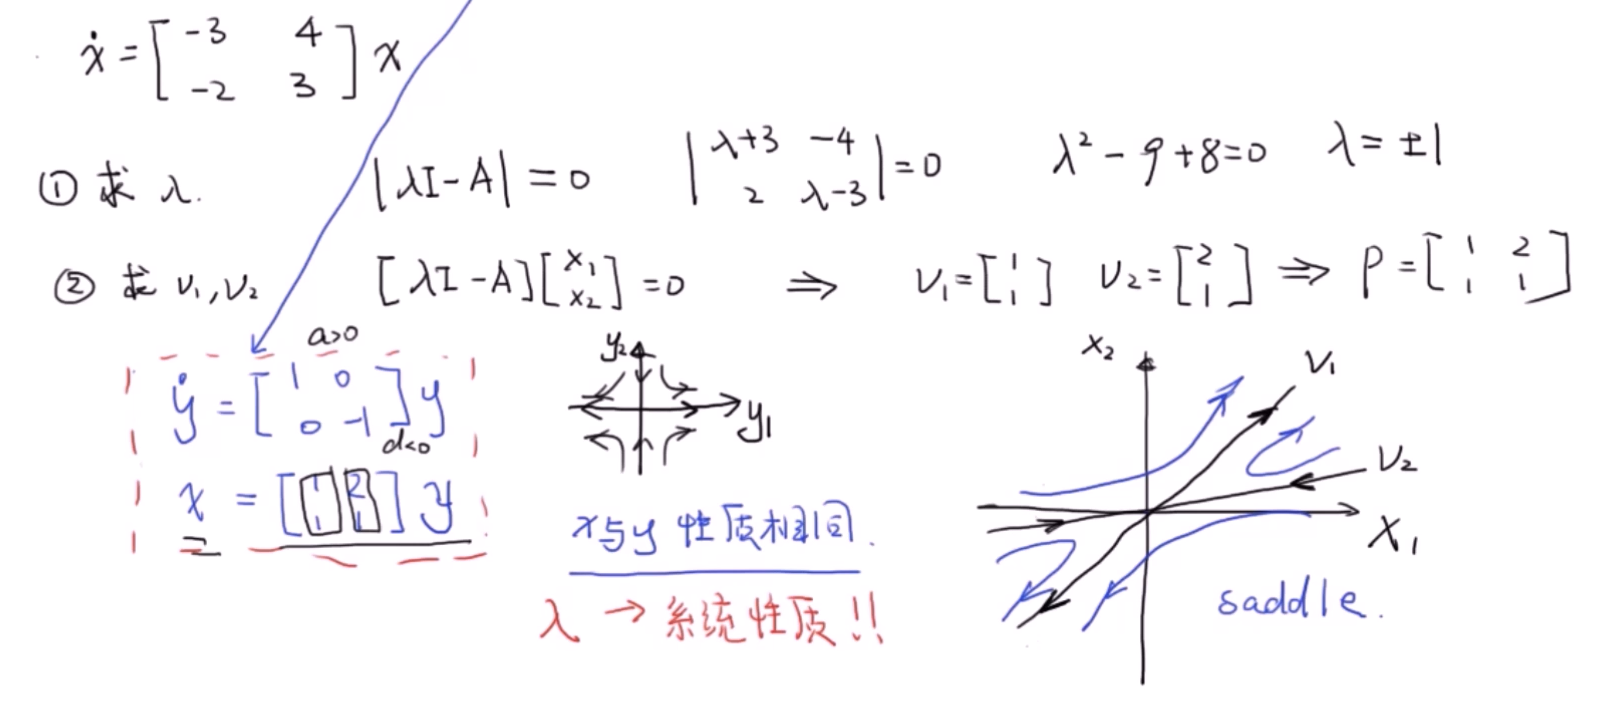 ẋ = [ -3 4 ; -2 3 ] x
① 求 λ. |λI-A| = 0 | λ+3 -4 ; 2 λ-3 | = 0 λ² - 9 + 8 = 0 λ = ±1
② 求 v₁, v₂ [λI-A] [ x₁ ; x₂ ] = 0 ⇒ v₁ = [ 1 ; 1 ] v₂ = [ 2 ; 1 ] ⇒ P = [ 1 2 ; 1 1 ]
a>0
ẏ = [ 1 0 ; 0 -1 ] y
d<0
x = [ 1 2 ; 1 1 ] y
y₂
y₁
x与y 性质相同.
λ → 系统性质!!
x₂
v₁
v₂
x₁
saddle.